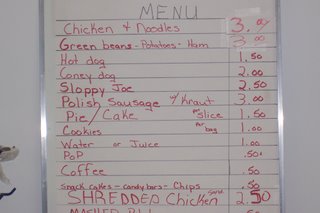 MENU
Chicken & Noodles 3.00
Green beans - Potatoes - Ham 3.00
Hot dog 1.50
Coney dog 2.00
Sloppy Joe 2.50
Polish Sausage w/ Kraut 3.00
Pie/Cake per slice 1.50
Cookies per bag 1.00
Water or Juice 1.00
POP .50
Coffee .50
Snack cakes - candy bars - Chips .50
SHREDDED Chicken Sand. 2.50